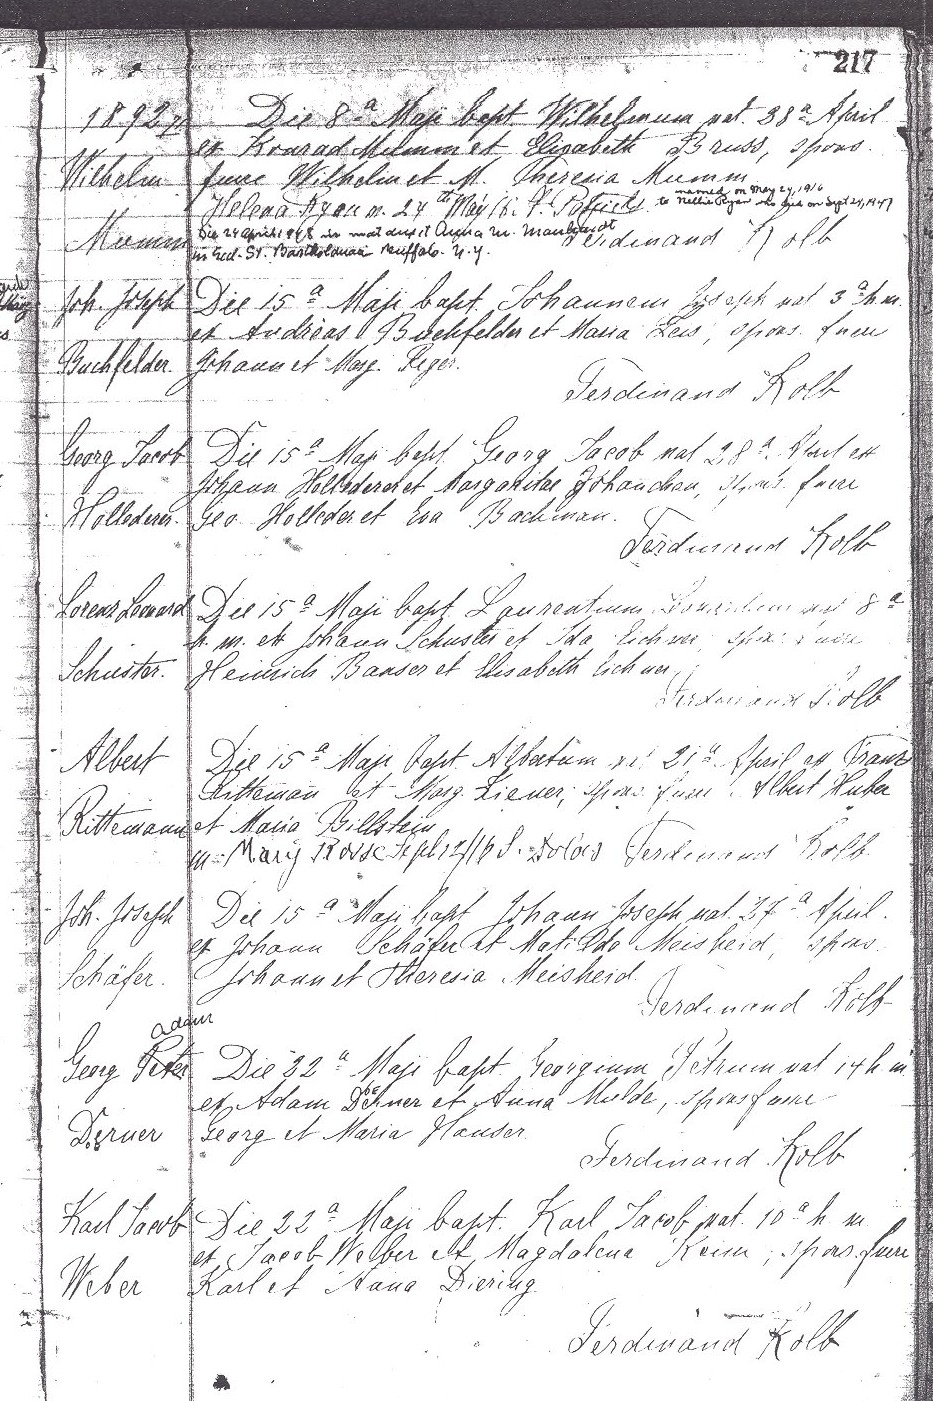 217
1892
Die 8a Maji bapt. Wilhelmum nat. 28a April
ex Konrad Mumm et Elizabeth Bruss, spons.
Wilhelm
fuere Wilhelm et M. Theresia Mumm
married on May 24, 1916
Helena Ryan m. 24th May 16.
to Nellie Ryan who died on Sept 21, 1947
Mumm
Die 24 April 1948 in mat. duxit Anna M.
Ferdinand Kolb
in Eccl. St. Bartholomaei Buffalo. N.Y.
Joh. Joseph
Die 15a Maji bapt. Johannem Joseph nat 3a h. m.
ex Andreas Buchfelder et Maria Leis, spons. fuere
Buchfelder.
Johann et Marg. Reger.
Ferdinand Kolb
Georg Jacob
Die 15a Maji bapt. Georg Jacob nat 28a April ex
Johann Hollederer et Margaritae spons. fuere
Hollederer.
Geo. Holleder et Eva Bachman.
Ferdinand Kolb
Lorenz Leonard
Die 15a Maji bapt. Laurentium Leonardum nat 8a
h. m. ex Johann Schuster et Ida Eichner, spons. fuere
Schuster.
Heinrich Banser et Elisabeth Eichner,
Ferdinand Kolb
Albert
Die 15a Maji bapt. Albertum nat 21a April ex Franz
Ritteman et Marg. Liener, spons. fuere Albert Huber
Rittemann
et Maria Billstein
m. Mary Rose Sept 12/16 S. Dolores
Ferdinand Kolb
Joh. Joseph
Die 15a Maji bapt. Johann Joseph nat. 27a April.
ex Johann Schäfer et Matilda Meisheid, spons.
Schäfer.
Johann et Theresia Meisheid.
Ferdinand Kolb
Adam
Georg Peter
Die 22a Maji bapt. Georgium Petrum nat 14 h. m.
ex Adam Derner et Anna Mulde, spons fuere
Derner
Georg et Maria Hauser.
Ferdinand Kolb
Karl Jacob
Die 22a Maji bapt. Karl Jacob nat. 10a h. m.
ex Jacob Weber et Magdalena Keim, spons. fuere
Weber
Karl et Anna Diering
Ferdinand Kolb